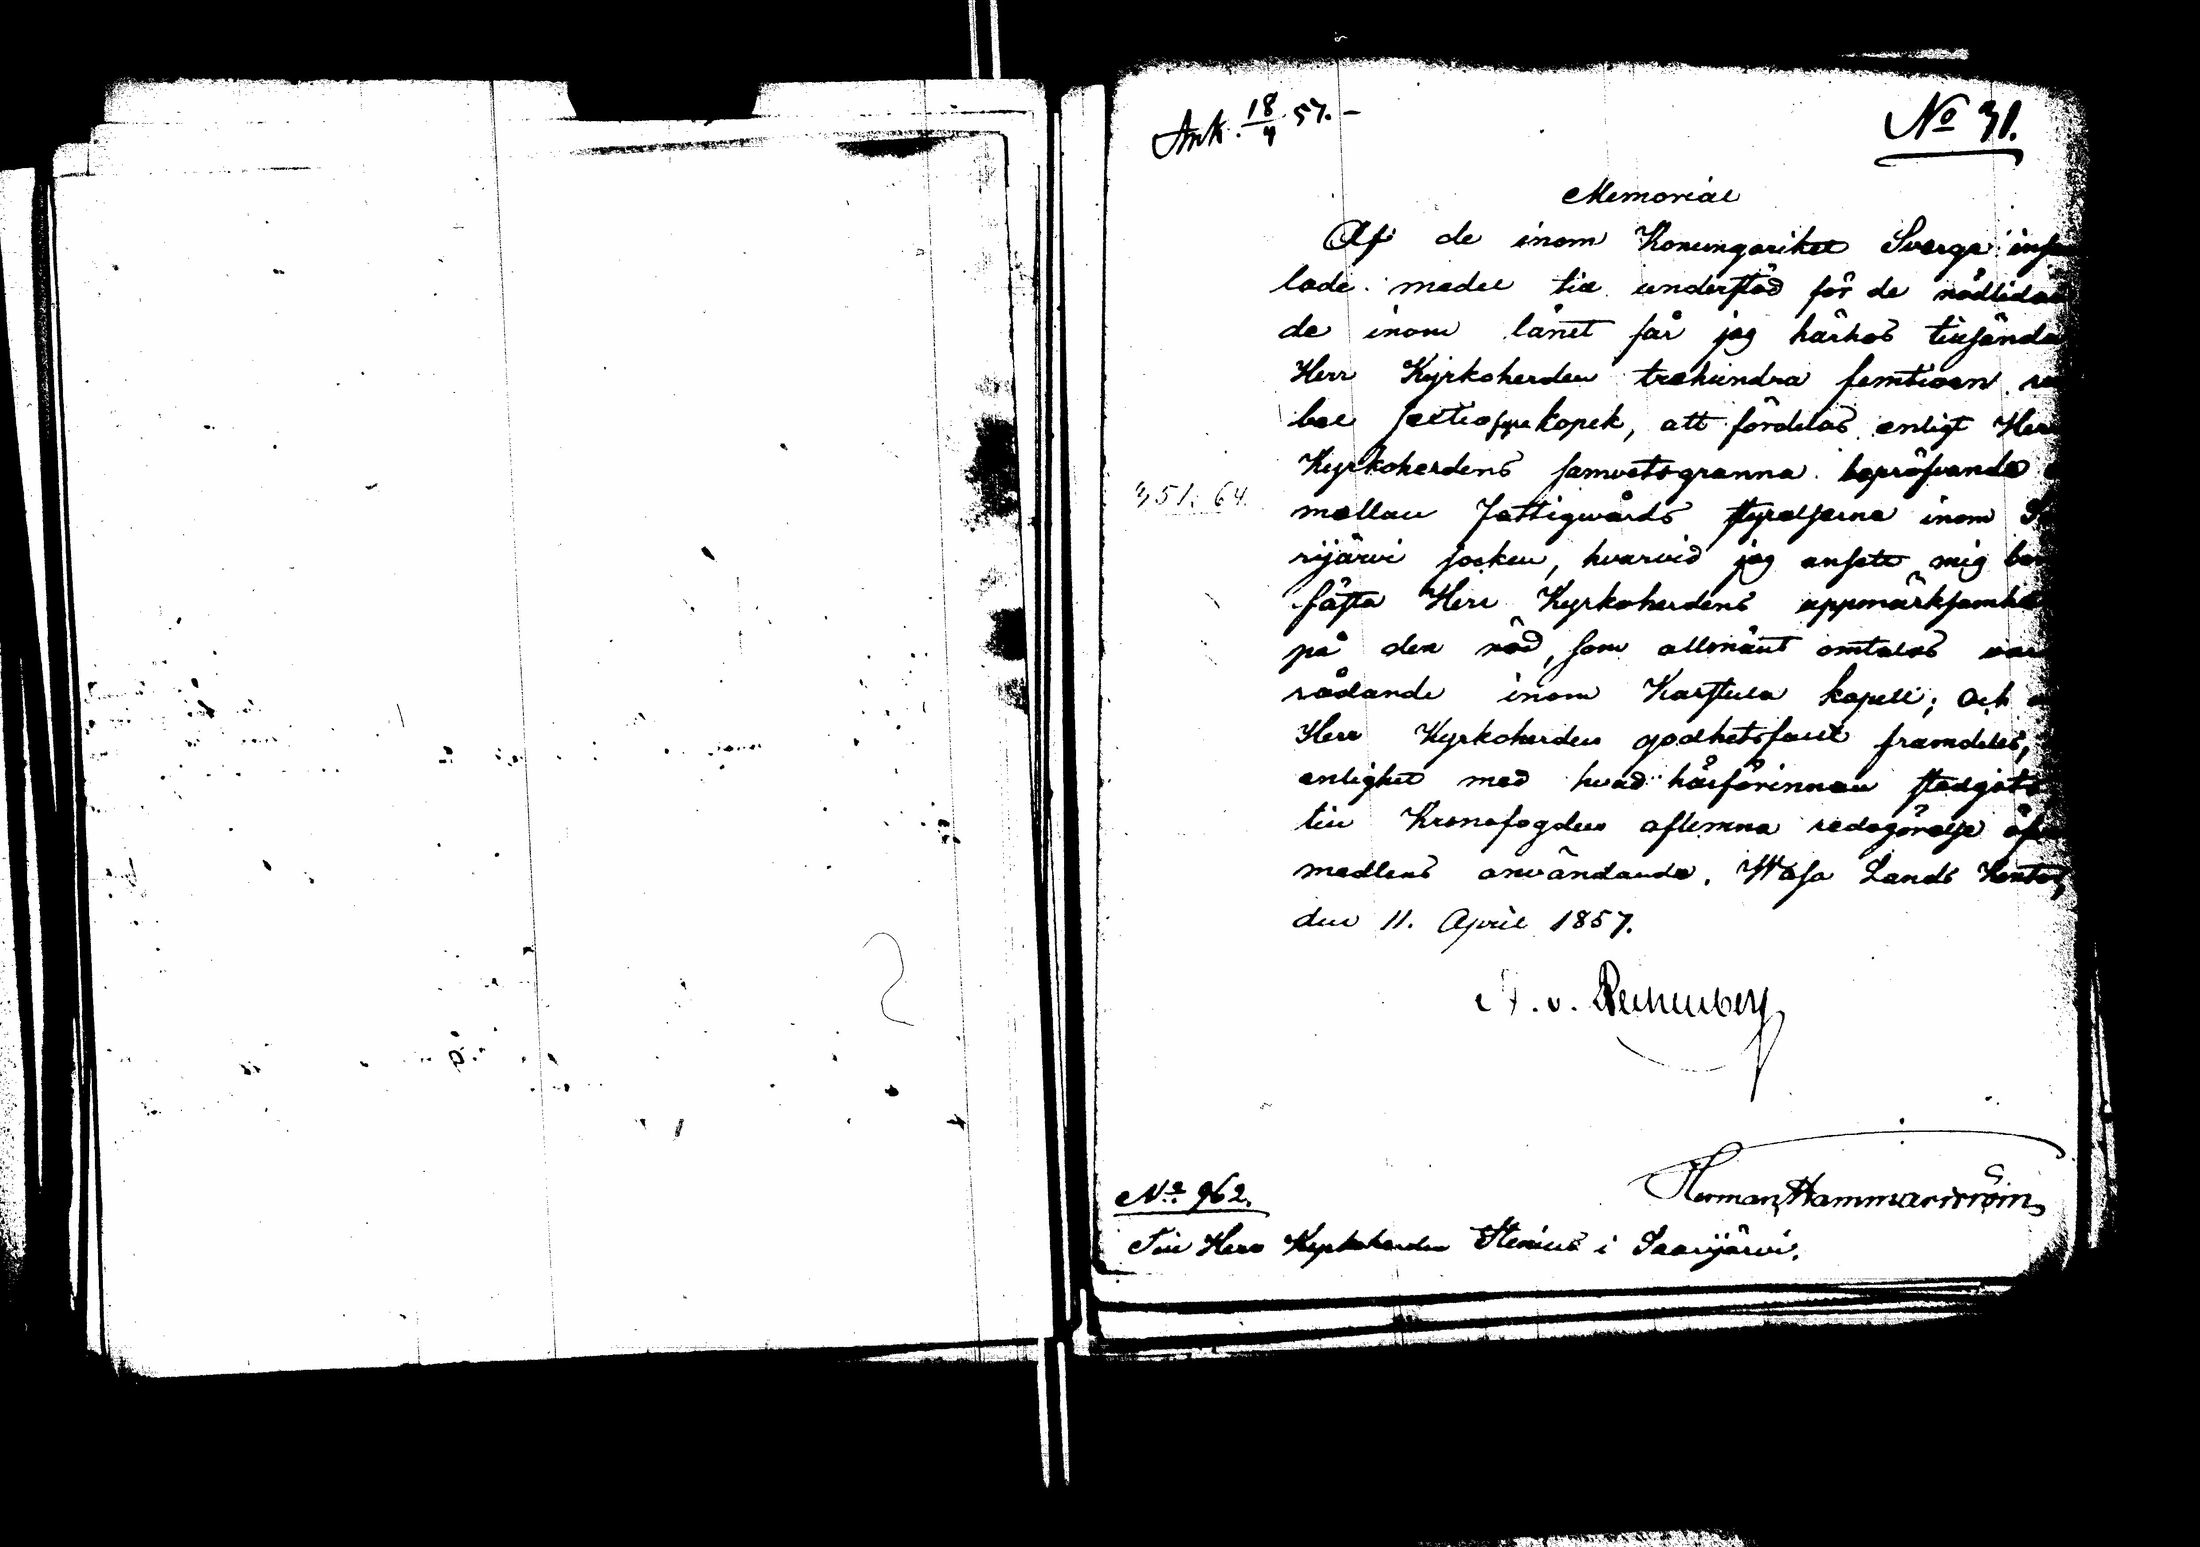 Ank. 18/4 57. –
No 31.
Memorial
Af de inom Konungariket Sverge insam
lade medel till understöd för de nödlidan
de inom länet får jag härhos tillsända
Herr Kyrkoherden trehundra femtioen ru
bel sextiofyra kopek, att fördelas enligt Herr
Kyrkoherdens samvetsgranna bepröfvande
351: 64.
mellan fattigvårds styrelserna inom Sa
rijärvi socken, hvarvid jag ansett mig bör
fästa Herr Kyrkoherdens uppmärksamhet
på den nöd, som allmänt omtalas vara
rådande inom Karstula kapell; och
Herr Kyrkoherden godhetsfullt framdeles,
enlighet med hvad härförinnan stadgats,
till Kronofogden aflemna redogörelse öfver
medlens användande. Wasa Lands Kontor,
den 11. April 1857.
v. Rechenberg
Herman Hammarström
No 962.
Till Herr Kyrkoherden Stenius i Saarijärvi.